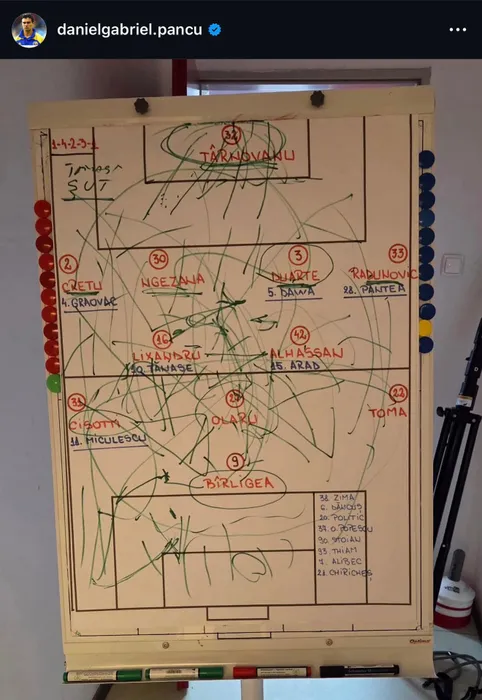 danielgabriel.pancu
1-4-2-3-1
ȘUT
32
TÂRNOVANU
2
30
3
33
CREȚU
NGEZANA
DUARTE
RADUNOVIC
4. GRAOVAC
5. DAWA
28. PANTEA
16
42
LIXANDRU
ALHASSAN
10. TANASE
15. ARAD
31
27
22
CISOTTI
OLARU
TOMA
11. MICULESCU
9
BÎRLIGEA
38. ZIMA
6. DĂNCUȘ
20. POLITIC
37. O. POPESCU
90. STOIAN
93. THIAM
7. ALIBEC
21. CHIRICHEȘ